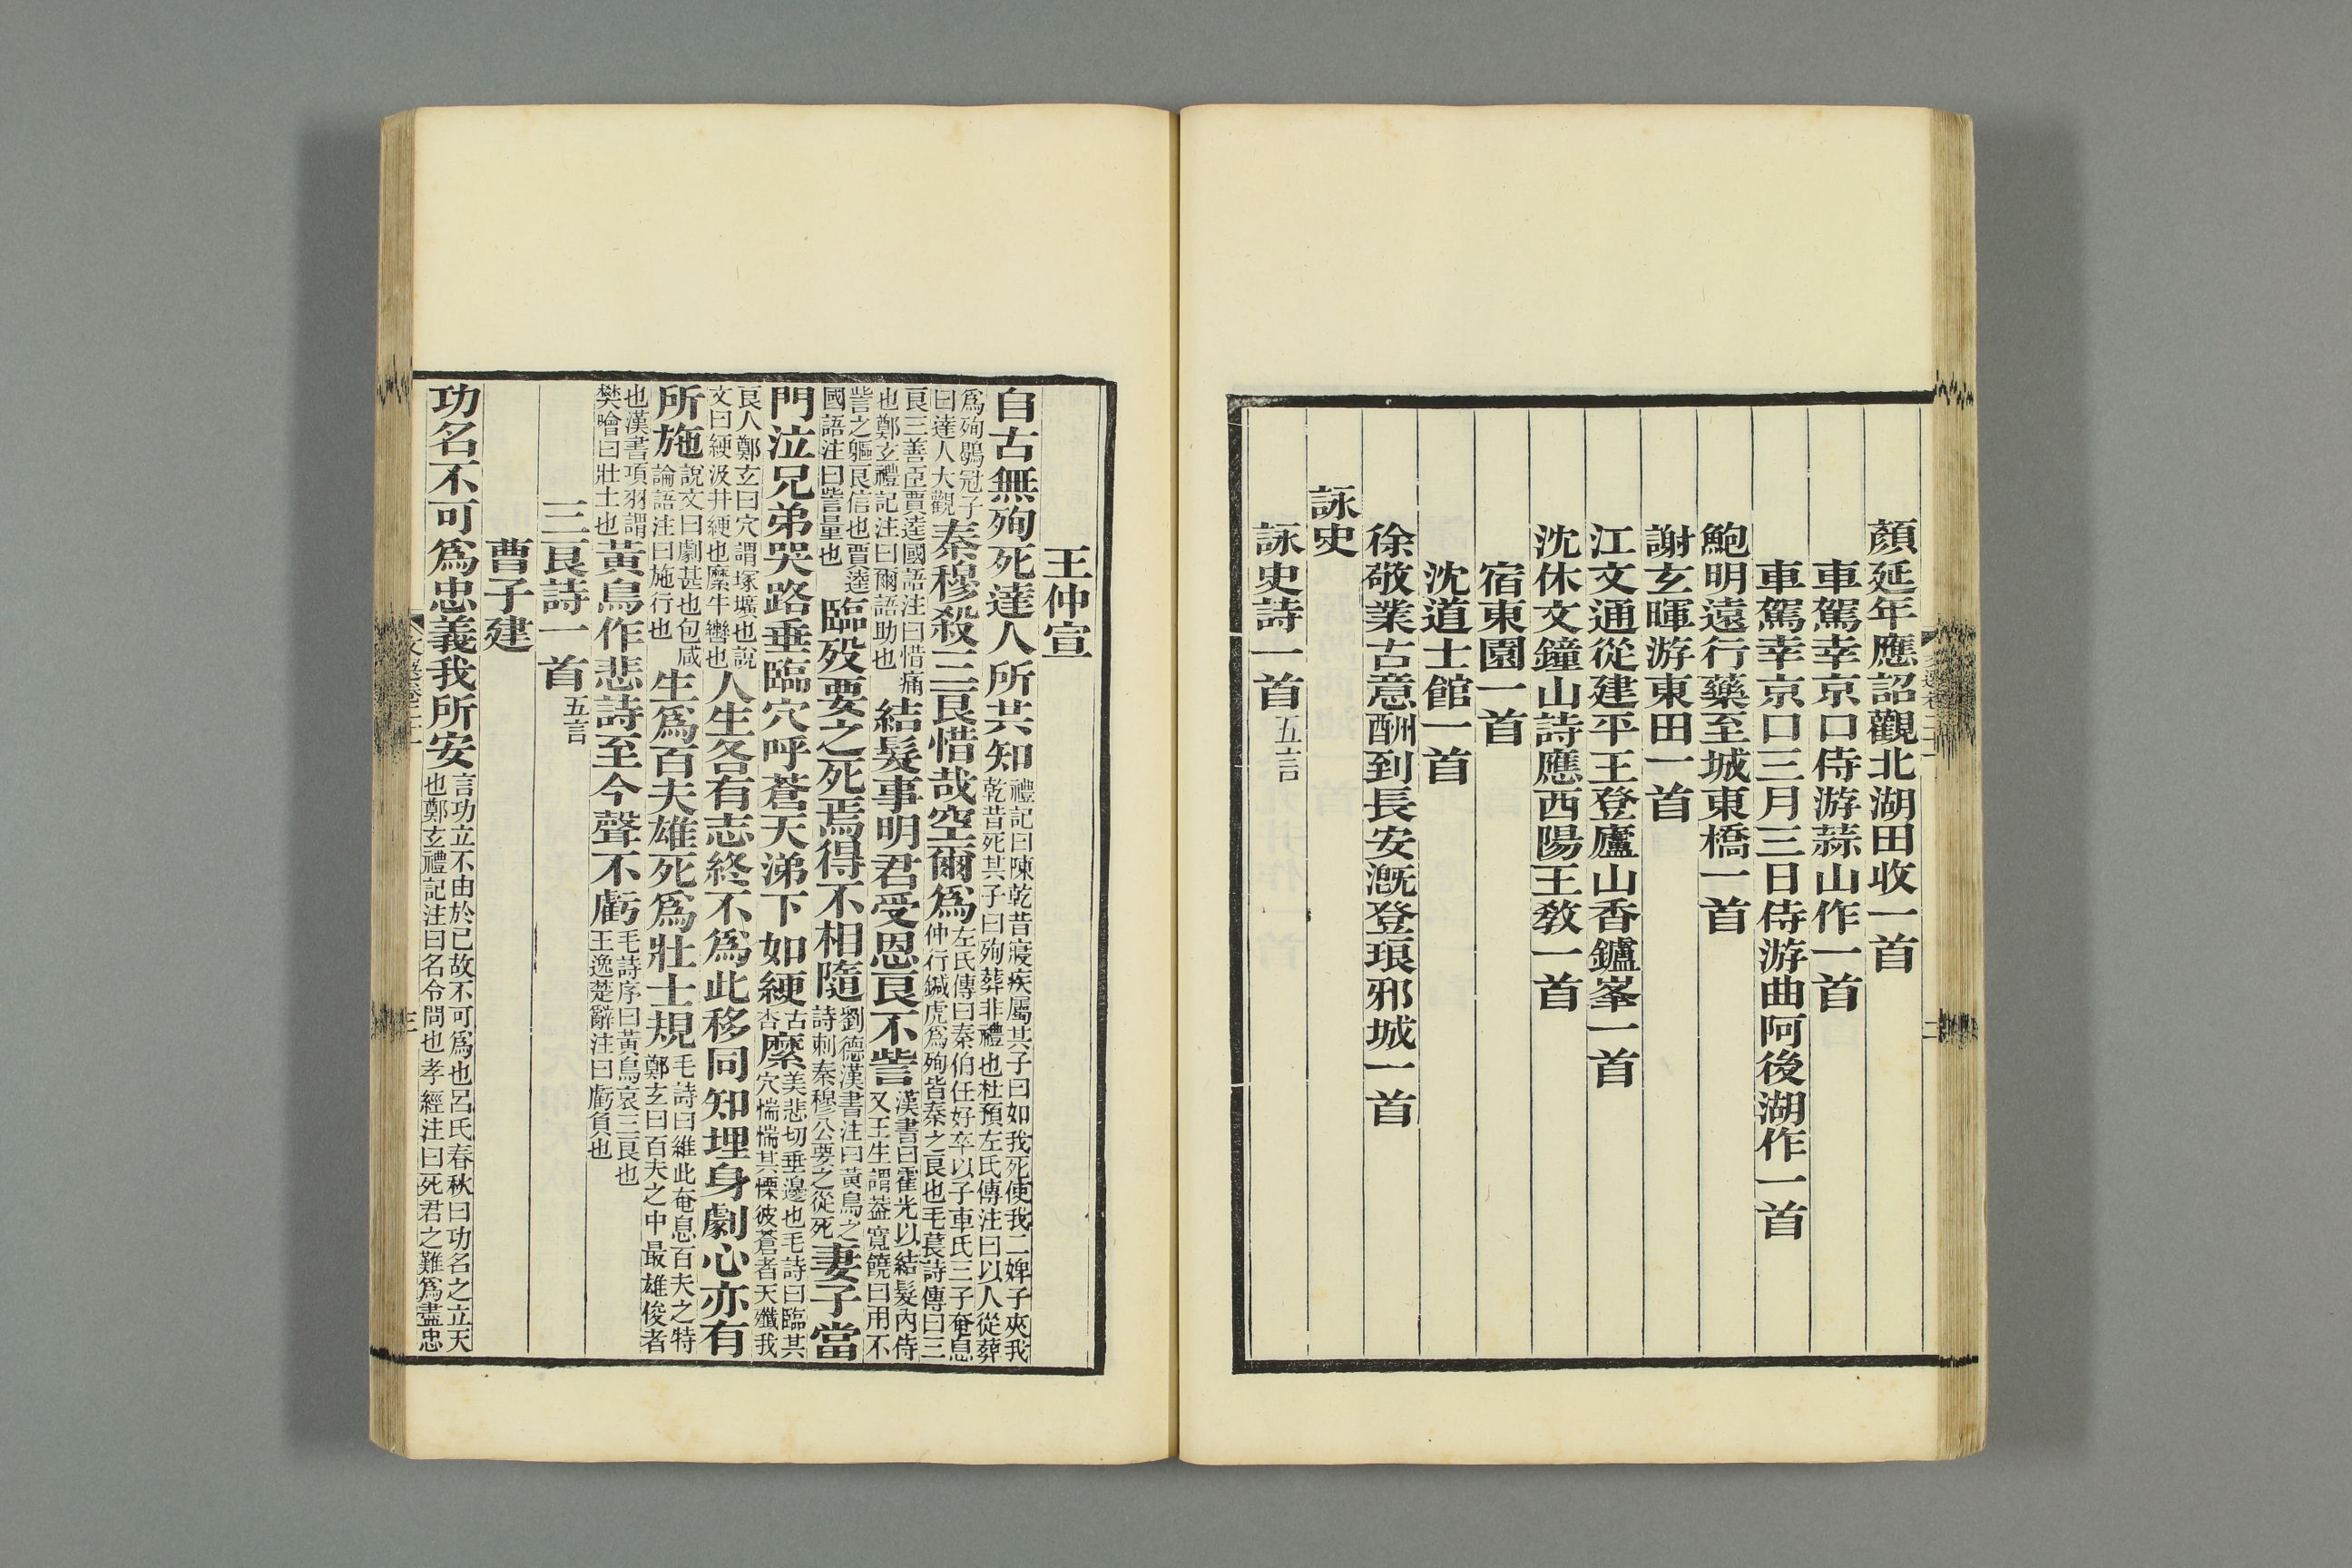 顏延年應詔觀北湖田收一首
車駕幸京口侍游蒜山作一首
車駕幸京口三月三日侍游曲阿後湖作一首
鮑明遠行藥至城東橋一首
謝玄暉游東田一首
江文通從建平王登廬山香鑪峯一首
沈休文鐘山詩應西陽王敎一首
宿東園一首
沈道士館一首
徐敬業古意酬到長安漑登琅邪城一首
詠史
詠史詩一首五言
王仲宣
自古無殉死達人所共知禮記曰陳乾昔寢疾屬其子曰如我死使我二婢子夾我乾昔死其子曰殉葬非禮也杜預左氏傳注曰以人從葬
爲殉鶡冠子曰達人大觀秦穆殺三良惜哉空爾爲左氏傳曰秦伯任好卒以子車氏三子奄息仲行鍼虎爲殉皆秦之良也毛萇詩傳曰三
良三善臣賈逵國語注曰惜痛也鄭玄禮記注曰爾語助也結髮事明君受恩良不訾漢書曰霍光以結髮內侍又王生謂蓋寬饒曰用不
訾之軀良信也賈逵國語注曰訾量也臨歿要之死焉得不相隨劉德漢書注曰黃鳥之詩刺秦穆公要之從死妻子當
門泣兄弟哭路垂臨穴呼蒼天涕下如綆古杏縻美悲切垂邊也毛詩曰臨其穴惴惴其慄彼蒼者天殲我
良人鄭玄曰穴謂塚壙也說文曰綆汲井綆也縻牛轡也人生各有志終不爲此移同知埋身劇心亦有
所施說文曰劇甚也包咸論語注曰施行也生爲百夫雄死爲壯士規毛詩曰維此奄息百夫之特鄭玄曰百夫之中最雄俊者
也漢書項羽謂樊噲曰壯士也黃鳥作悲詩至今聲不虧毛詩序曰黃鳥哀三良也王逸楚辭注曰虧負也
三良詩一首五言
曹子建
功名不可爲忠義我所安言功立不由於己故不可爲也呂氏春秋曰功名之立天也鄭玄禮記注曰名令問也孝經注曰死君之難爲盡忠
三